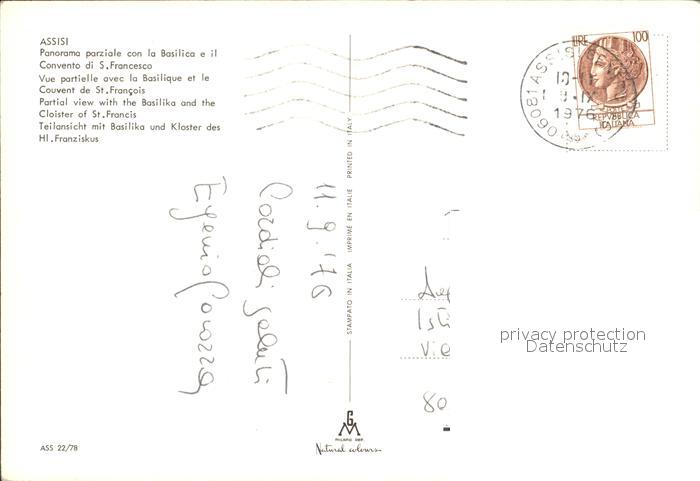 ASSISI
Panorama parziale con la Basilica e il
Convento di S.Francesco
Vue partielle avec la Basilique et le
Couvent de St.François
Partial view with the Basilika and the
Cloister of St.Francis
Teilansicht mit Basilika und Kloster des
Hl.Franziskus
LIRE 100
REPVBBLICA
ITALIANA
06081 ASSISI
1976
11.9.'76
Cordiali saluti
STAMPATO IN ITALIA IMPRIMÉ EN ITALIE PRINTED IN ITALY
80
privacy protection
Datenschutz
GM
MILANO DEP.
Natural colours
ASS 22/78